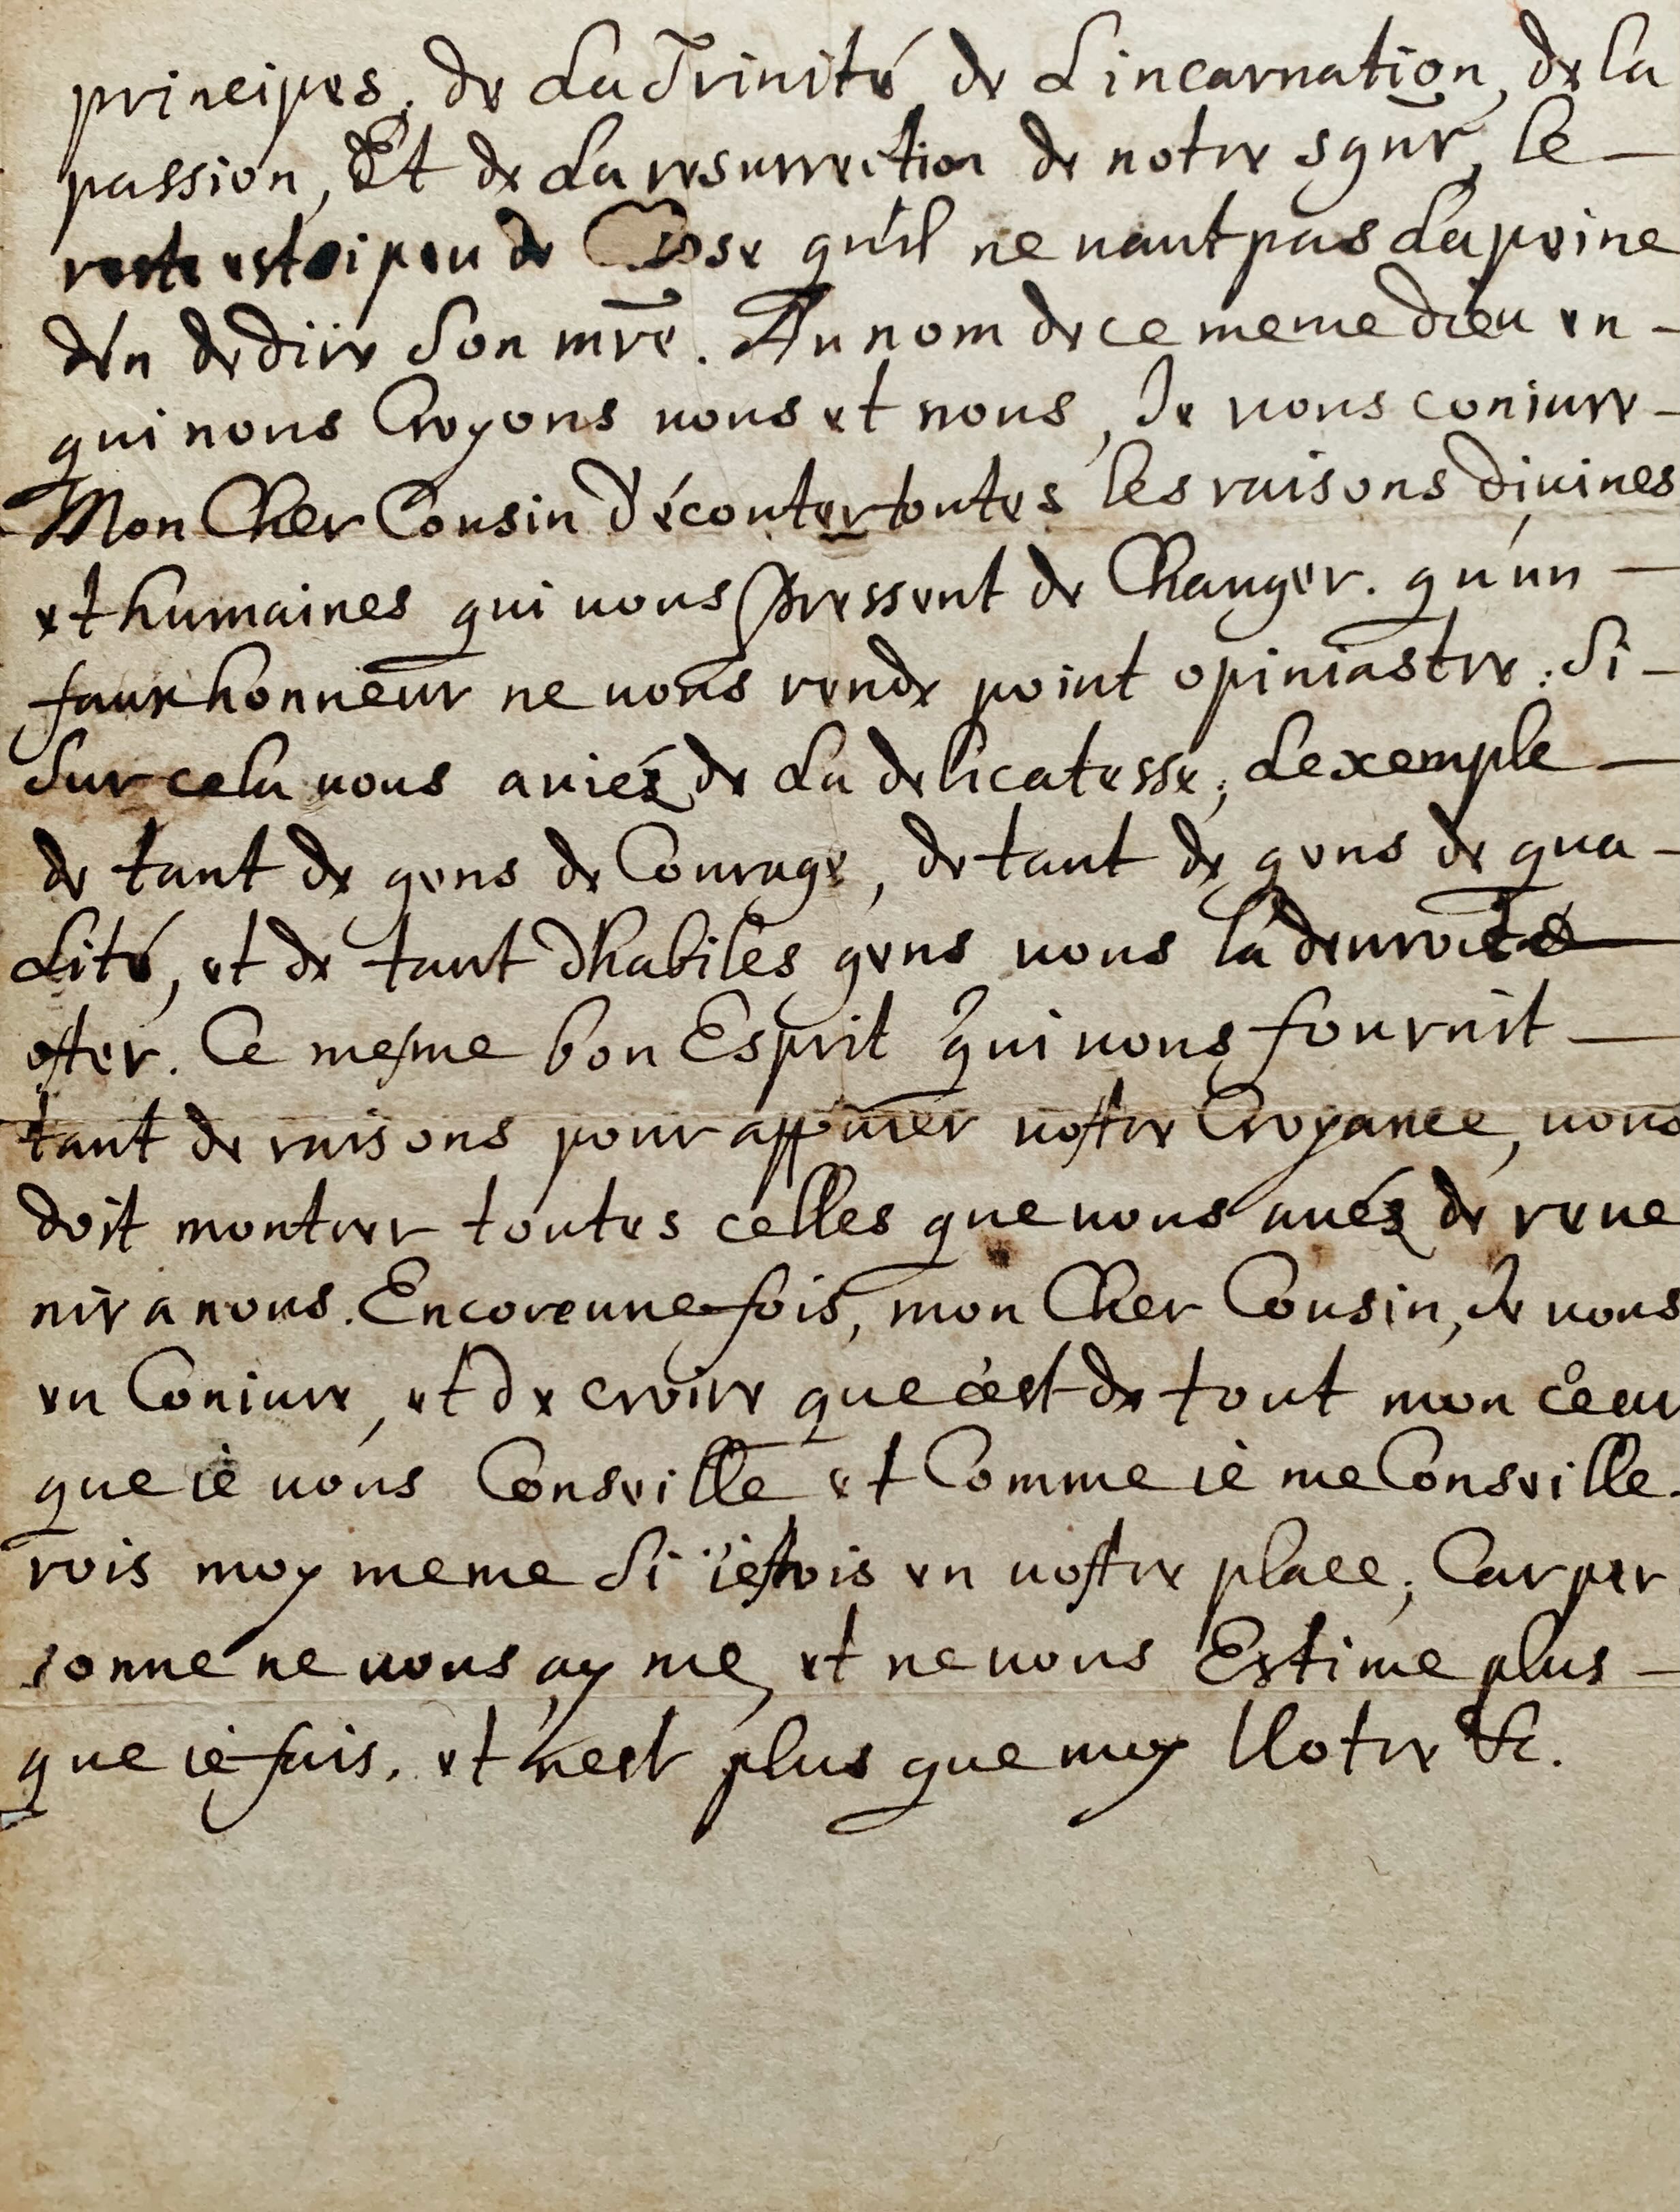 principes, de La Trinité de Lincarnation, de la
passion, Et de La resurrection de notre sgnr, le
reste est si peu de Chose qu'il ne uaut pas La peine
d'en dedire Son mre. Au nom de ce meme dieu en
qui nous Croyons uous et nous, Je uous coniure
Mon Cher Cousin d'écouter toutes les raisons diuines
et humaines qui uous pressent de Changer. qu'un
faux honneur ne uous rende point opiniastre. Si
Sur cela uous auiéz de La delicatesse, Lexemple
de tant de gens de Courage, de tant de gens de qua-
Lité, et de tant dhabiles gens uous la deuroit
oster. Ce mesme bon Esprit qui uous fournit
tant de raisons pour appuier uostre Croyance, uous
doit montrer toutes celles que uous aués de reue
nir a nous. Encore une fois, mon Cher Cousin, Je uous
en Coniure, et de croire que c'est de tout mon cœur
que ie uous Conseille et Comme ie me Conseille-
rois moy meme Si i'estois en uostre place, Car per
sonne ne uous ayme, et ne uous Estime plus
que ie fais, et nest plus que moy Uotre &c.